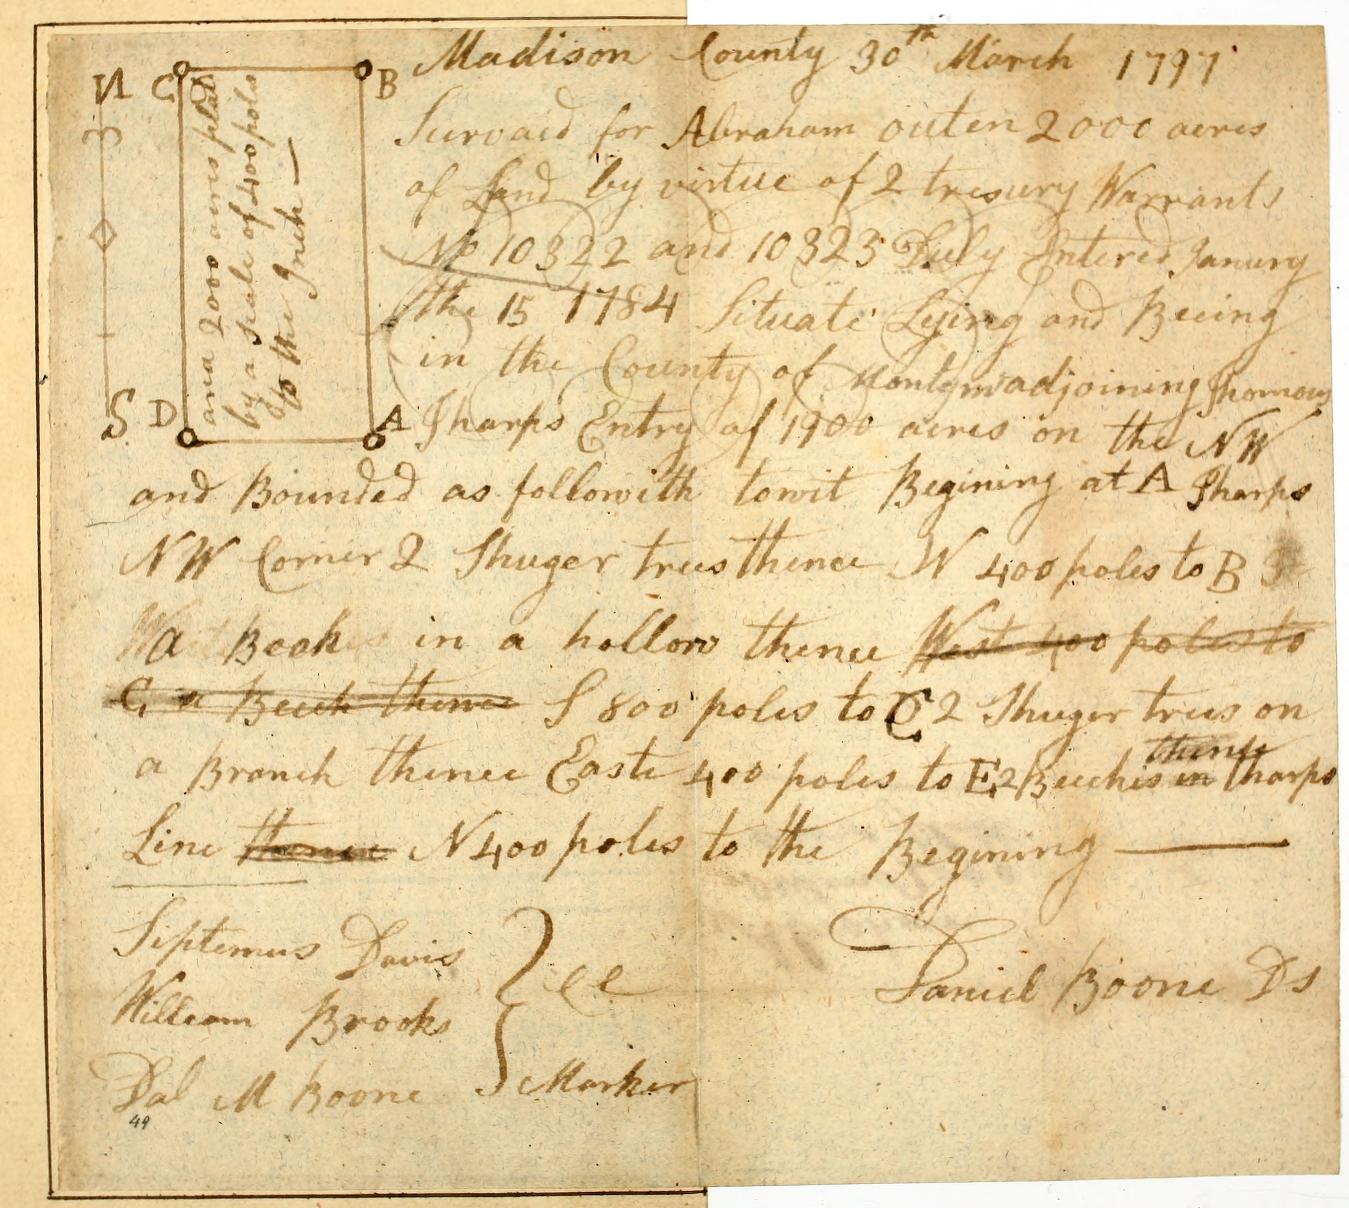 Madison County 30th March 1797
N C B
3
area 2000 acres plat
by a scale of 400 pols
to the Inch —
S D A
Survaid for Abraham outen 2000 acres
of Land by virtue of 2 tresury Warrants
No 10322 and 10323 Duly Entered Janury
the 15 1784 Situate Lying and Beeing
in the County of adjoining Thomous
Tharps Entry of 1900 acres on the NW
and Bounded as followith towit Begining at A Tharps
NW Corner 2 Shuger trees thence W 400 poles to B 3
a Beek in a hollow thence West 400 poles to
C a Beech thence S 800 poles to C 2 Shuger trees on
a Branch thence Easte 400 poles to E 2 Beeches in thence tharps
Line thence N 400 poles to the Begining —
Septemus Davis
William Brooks } CC
Dal M Boone Marker
Daniel Boone Ds
49